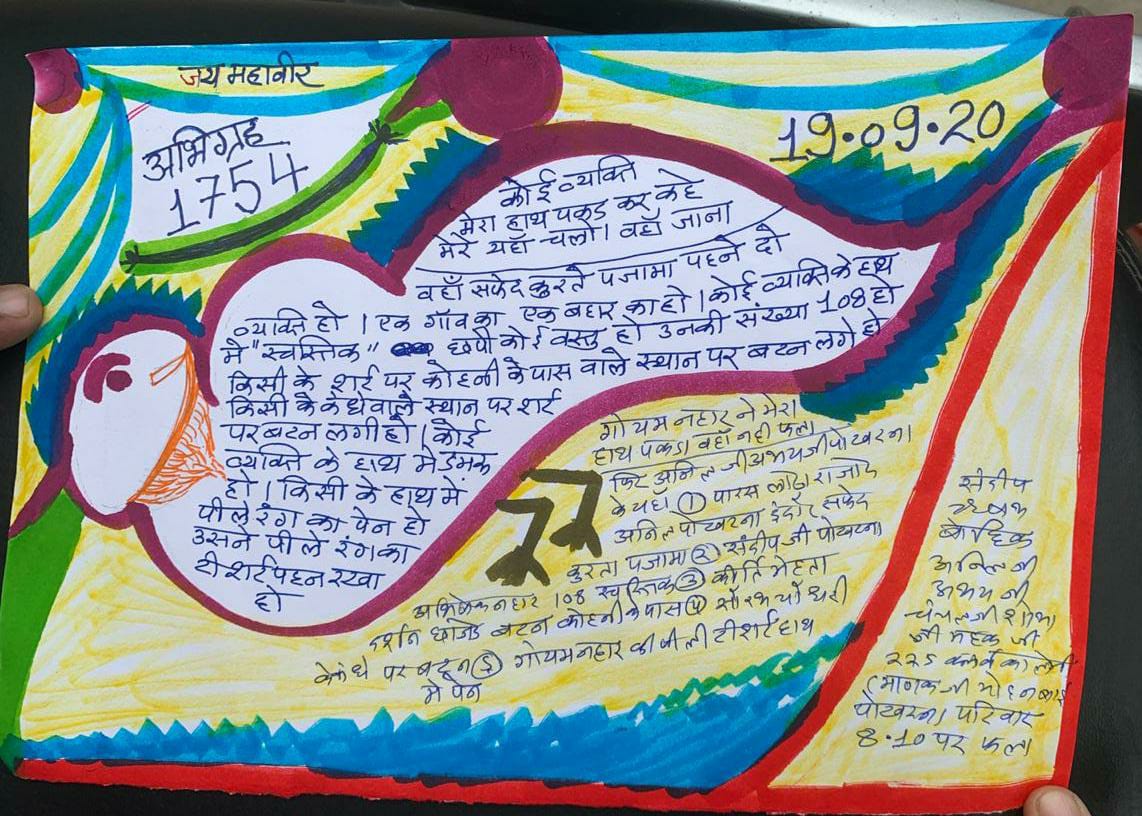 जय महावीर
अभिग्रह
1754
19.09.20
कोई व्यक्ति
मेरा हाथ पकड कर कहे
मेरे यहाँ चलो। वहाँ जाना
वहाँ सफेद कुरते पजामा पहने दो
व्यक्ति हो। एक गाँव का एक बहार का हो। कोई व्यक्ति के हाथ
मे "स्वस्तिक" छपी कोई वस्तु हो उनकी संख्या 108 हो
किसी के शर्ट पर कोहनी के पास वाले स्थान पर बटन लगे हो
किसी के कंधे वाले स्थान पर शर्ट
पर बटन लगी हो। कोई
व्यक्ति के हाथ मे डमरू
हो। किसी के हाथ में
पीले रंग का पेन हो
उसने पीले रंग का
टी शर्ट पहन रखा
हो
गोयम नहार ने मेरा
हाथ पकडा वहाँ नही फला
फिर अनिल जी अभय जी पोखरना
के यहाँ ① पारस लोढा राजोद
अनिल पोखरना इंदौर सफेद
कुरता पजामा ② संदीप जी पोखरना
108 स्वस्तिक ③ कीर्ति मेहता
बटन कोहनी के पास ④ सौरभ चौधरी
के कंधे पर बटन ⑤ गोयम नहार की पीली टी शर्ट हाथ
मे पेन
संदीप
अनिल जी
अभय जी
जी महक जी
225
माणक जी मोहन बाई
पोखरना परिवार
8.10 पर फला